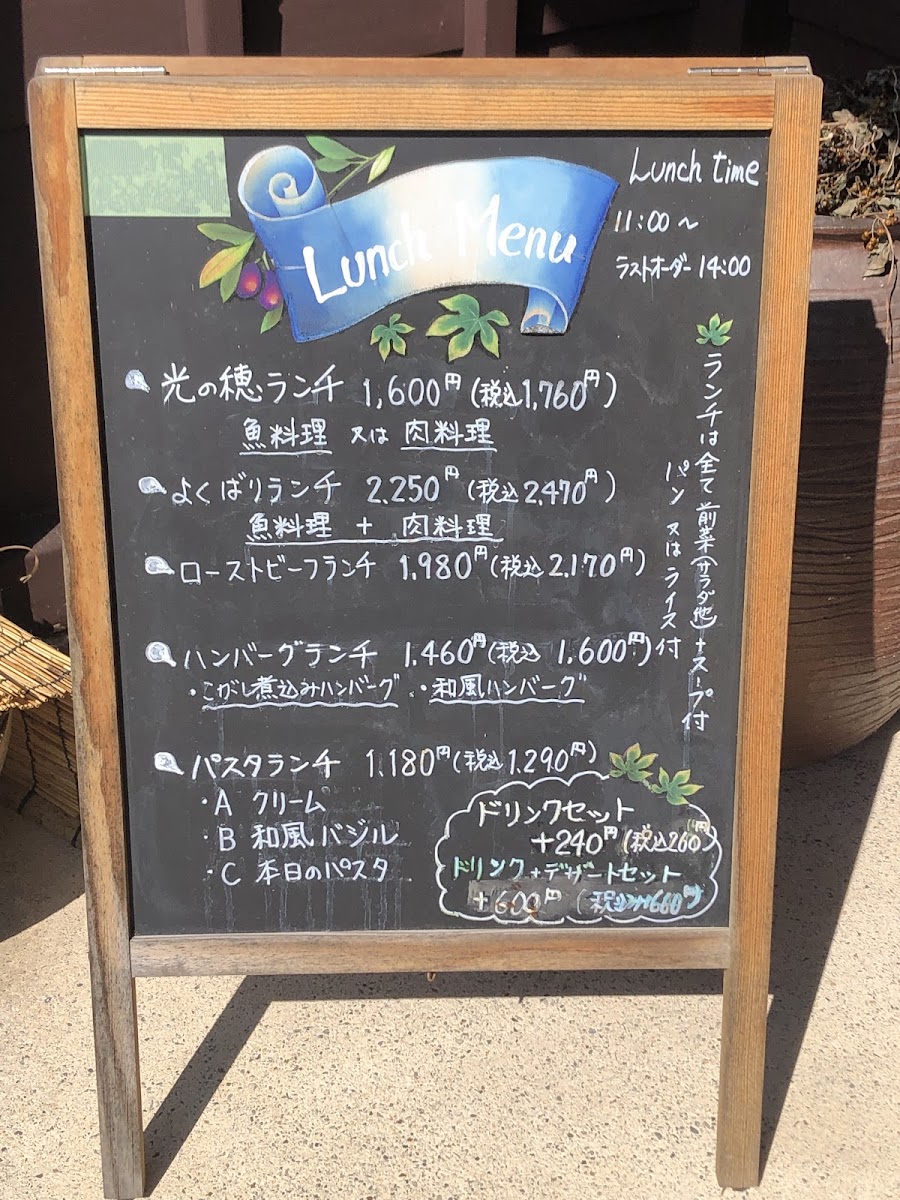 Lunch Menu
Lunch time
11:00〜
ラストオーダー 14:00
光の穂ランチ 1,600円(税込1,760円)
魚料理 又は 肉料理
よくばりランチ 2.250円(税込2470円)
魚料理 + 肉料理
ローストビーフランチ 1,980円(税込2.170円)
ハンバーグランチ 1.460円(税込 1,600円)
・こがし煮込みハンバーグ ・和風ハンバーグ
パスタランチ 1.180円(税込1.290円)
・A クリーム
・B 和風バジル
・C 本日のパスタ
ランチは全て前菜(サラダ他)+スープ付
パン又はライス付
ドリンクセット
+240円(税込260円)
ドリンク+デザートセット
+600円(税込660円)